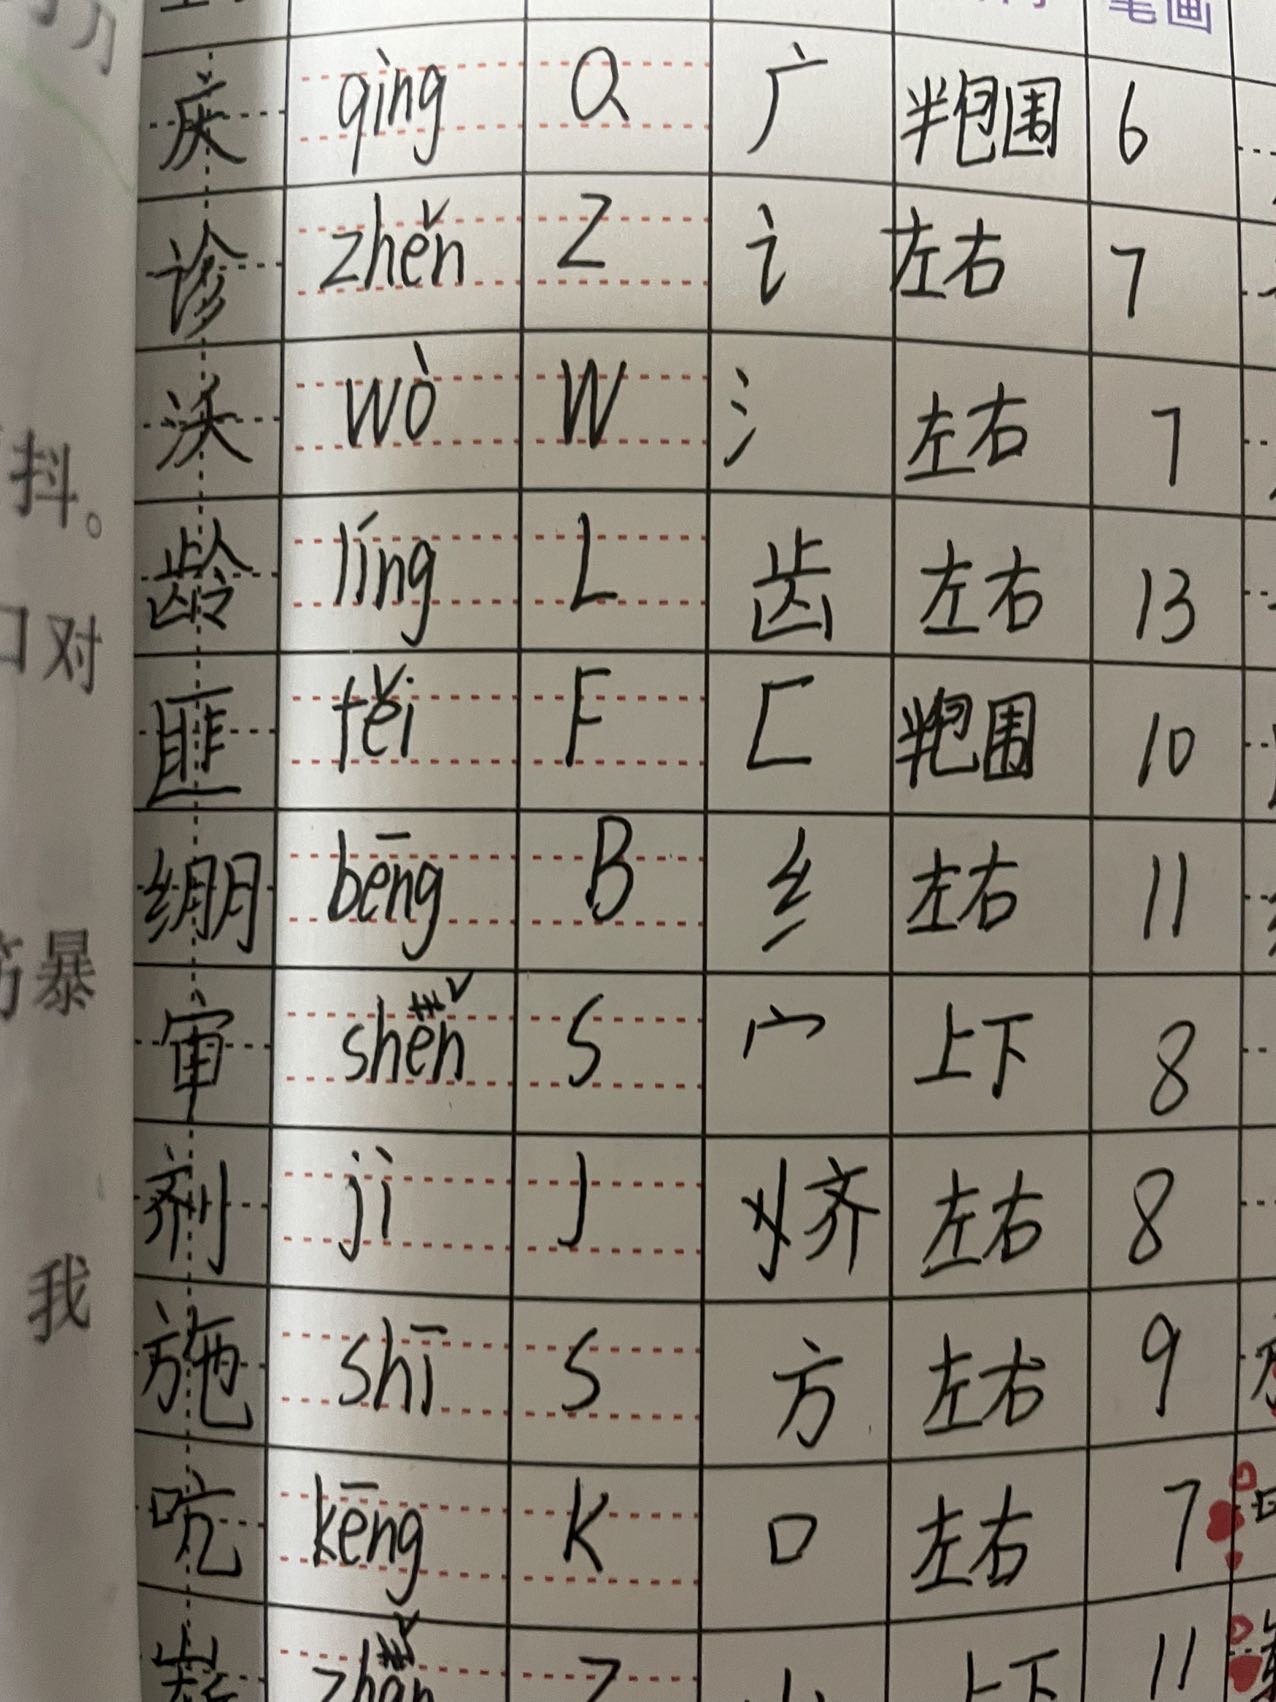 笔画
庆 qìng Q 广 半包围 6
诊 zhěn Z 讠 左右 7
沃 wò W 氵 左右 7
龄 líng L 齿 左右 13
匪 fěi F 匚 半包围 10
绷 bēng B 纟 左右 11
审 shěn S 宀 上下 8
剂 jì J 齐 左右 8
施 shī S 方 左右 9
吭 kēng K 口 左右 7
崭 zhǎn Z 山 上下 11
抖。
口对
暴
我